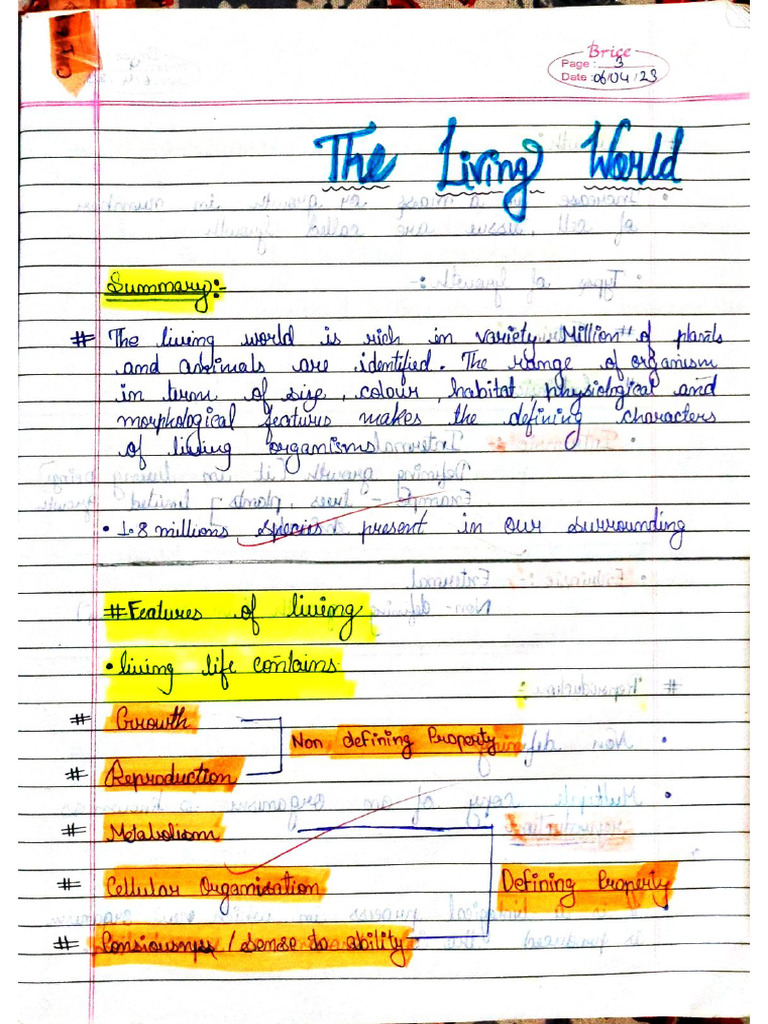 Brice
Page: 3
Date: 06/04/23
The Living World
Summary:-
# The living world is rich in variety. Million# of plants
and animals are identified. The range of organism
in term of size, colour, habitat, physiological and
morphological features makes the defining characters
of living organisms
• 1.8 millions species present in our surrounding
# Features of living
• living life contains
# Growth
Non defining Property
# Reproduction
# Metabolism
# Cellular Organisation
Defining Property
# Consiousness / sense to ability